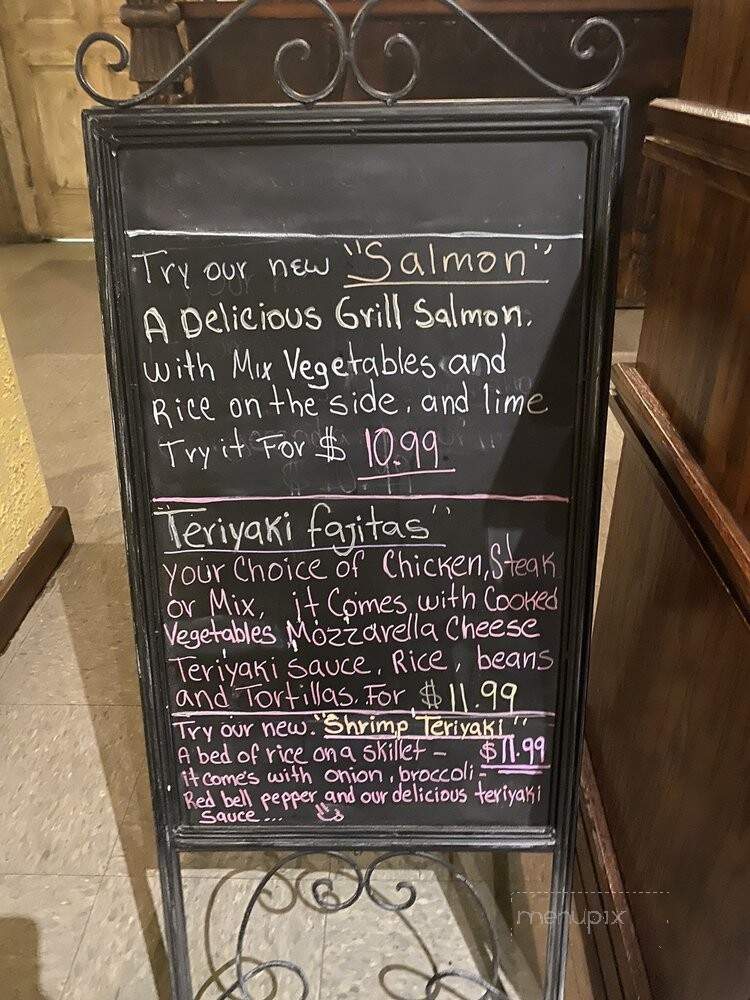 Try our new "Salmon"
A Delicious Grill Salmon.
with Mix Vegetables and
Rice on the side. and lime
Try it For $ 10.99
"Teriyaki fajitas"
your Choice of Chicken, Steak
or Mix, it Comes with Cooked
Vegetables Mozzarella Cheese
Teriyaki sauce, Rice, beans
and Tortillas. For $11.99
Try our new. "Shrimp Teriyaki"
A bed of rice on a skillet - $11.99
it comes with onion, broccoli -
Red bell pepper and our delicious teriyaki
sauce...
menupix